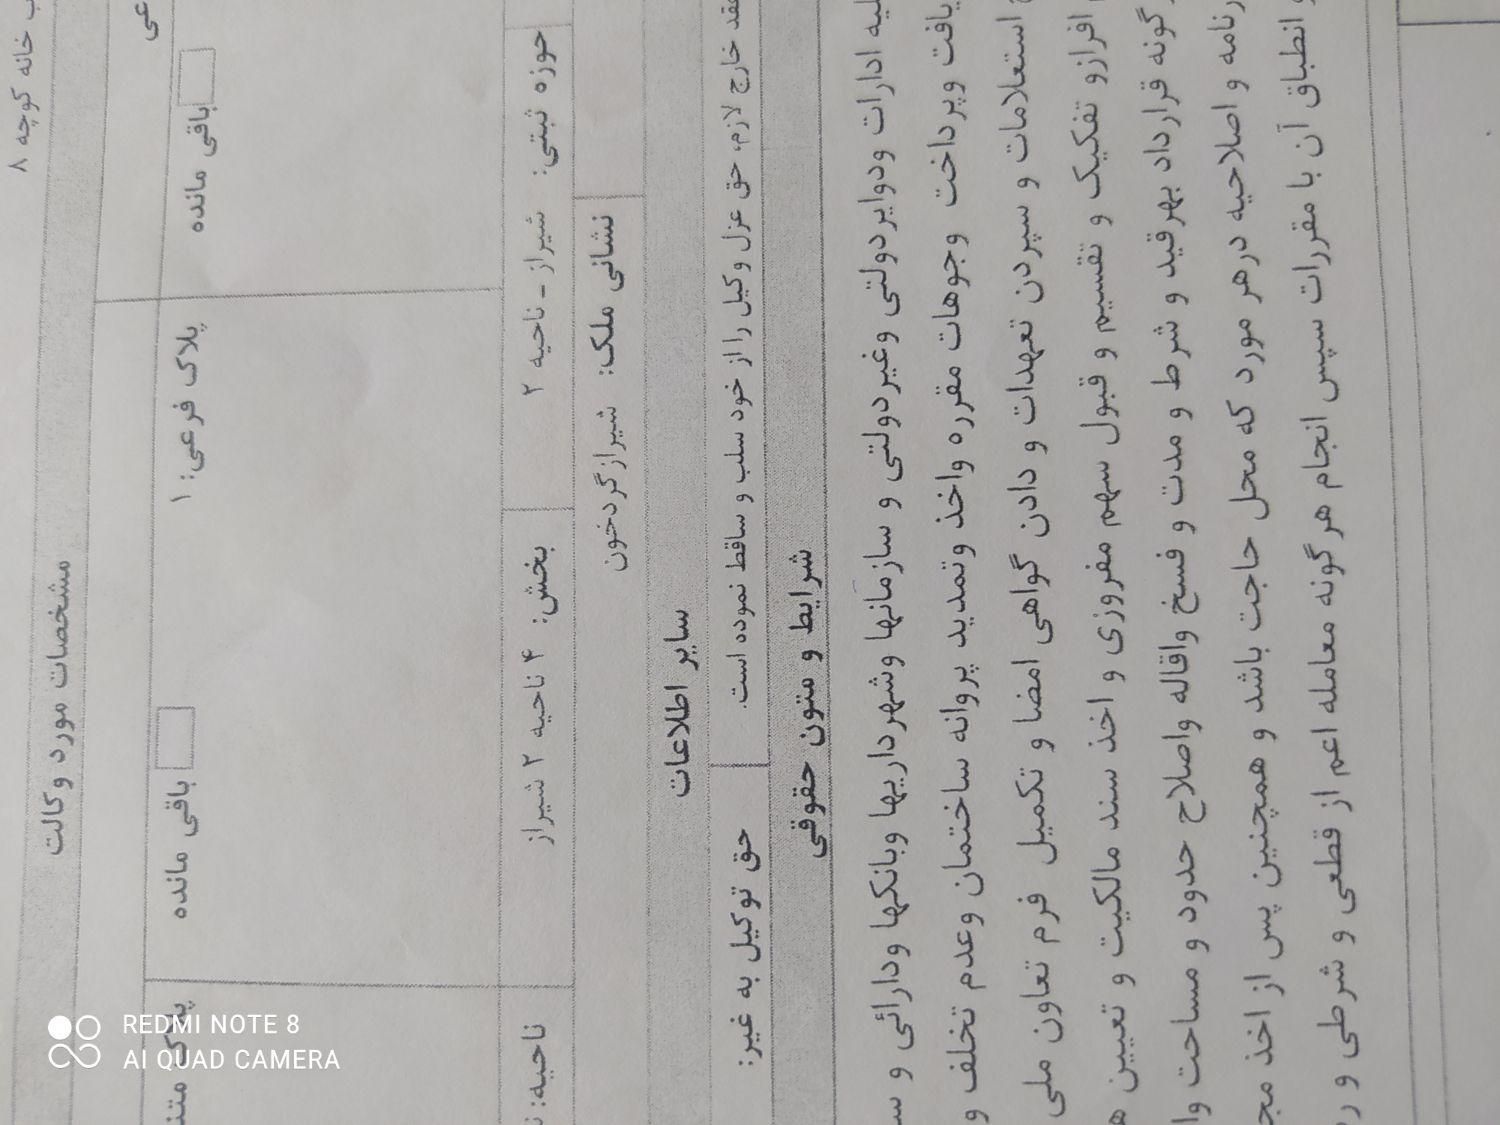 ب خانه کوچه ۸
مشخصات مورد وکالت
عی
باقی مانده
پلاک فرعی: ۱
باقی مانده
پلاک متن
حوزه ثبتی: شیراز - ناحیه ۲
بخش: ۴ ناحیه ۲ شیراز
ناحیه:
نشانی ملک: شیرازگردخون
سایر اطلاعات
عقد خارج لازم، حق عزل وکیل را از خود سلب و ساقط نموده است.
حق توکیل به غیر:
شرایط و متون حقوقی
لیه ادارات ودوایردولتی وغیردولتی و سازمانها وشهرداریها وبانکها ودارائی و س
یافت وپرداخت وجوهات مقرره واخذ وتمدید پروانه ساختمان وعدم تخلف و
استعلامات و سپردن تعهدات و دادن گواهی امضا و تکمیل فرم تعاون ملی
افرازو تفکیک و تقسیم و قبول سهم مفروزی و اخذ سند مالکیت و تعیین ه
گونه قرارداد بهرقید و شرط و مدت و فسخ واقاله واصلاح حدود و مساحت وا
رنامه و اصلاحیه درهر مورد که محل حاجت باشد و همچنین پس از اخذ مج
و انطباق آن با مقررات سپس انجام هرگونه معامله اعم از قطعی و شرطی و ر
REDMI NOTE 8
AI QUAD CAMERA